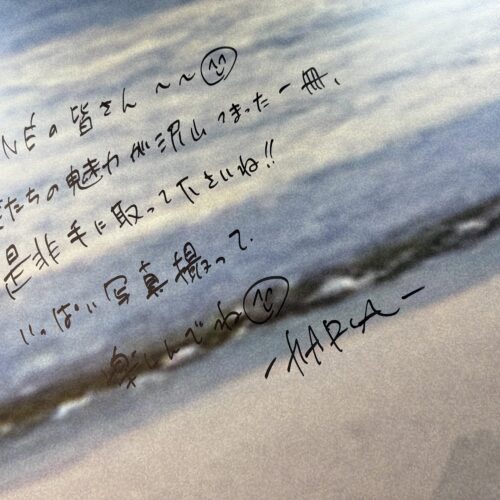 NEの皆さん〜〜
たちの魅力が沢山つまった一冊、
是非手に取って下さいね!!
いっぱい写真撮って、
楽しんでね
-HARUA-